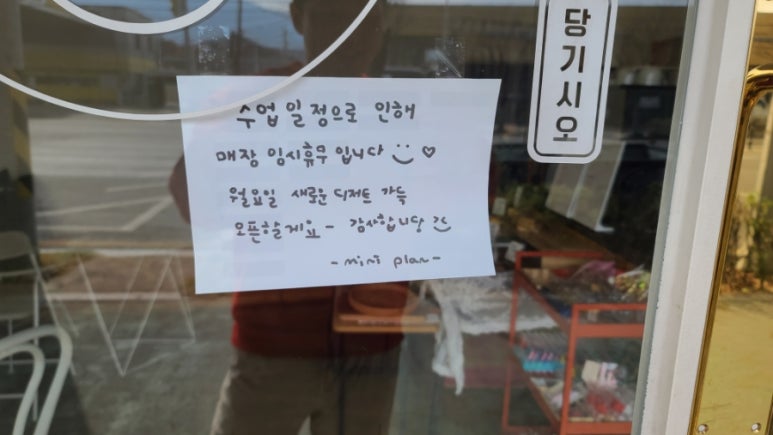 수업 일정으로 인해
매장 임시휴무 입니다
월요일 새로운 디저트 가득
오픈할게요- 감사합니다
- mini plan -
당기시오